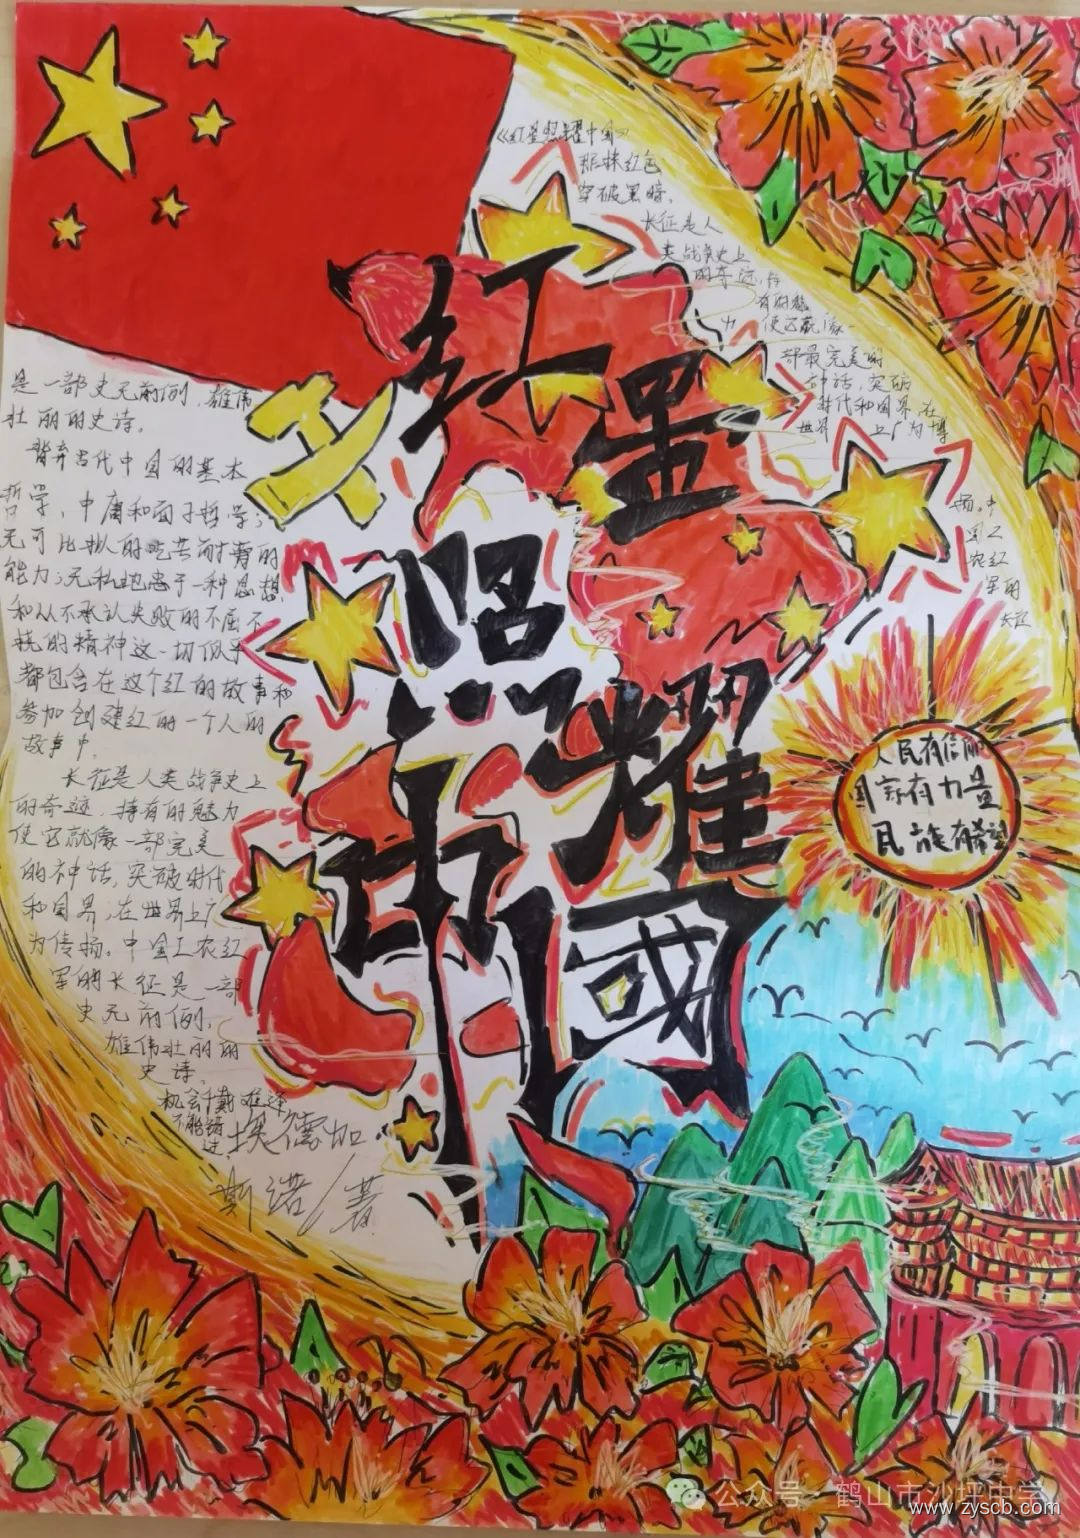 《红星照耀中国》
那抹红色
穿破黑暗，
长征是人
类战争史上
的奇迹，持
有的魅
力 使它就像一
部最完美的
神话，突破
时代和国界，在
世界 上广为传
扬。中
国工
农红
军的
长征
是一部史无前例、雄伟
壮丽的史诗。
背弃古代中国的基本
哲学，中庸和面子哲学；
无可比拟的吃苦耐劳的
能力；无私地忠于一种思想
和从不承认失败的不屈不
挠的精神这一切似乎
都包含在这个红的故事和
参加创建红的一个人的
故事中。
长征是人类战争史上
的奇迹，持有的魅力
使它就像一部完美
的神话，突破时代
和国界，在世界上广
为传扬。中国工农红
军的长征是一部
史无前例、
雄伟壮丽的
史诗。
机会千载难逢
不能错
过
埃德加
斯诺/著
红星
照耀
中國
人民有信仰
国家有力量
民族有希望
公众号 鹤山市沙坪中学
www.zyscb.com